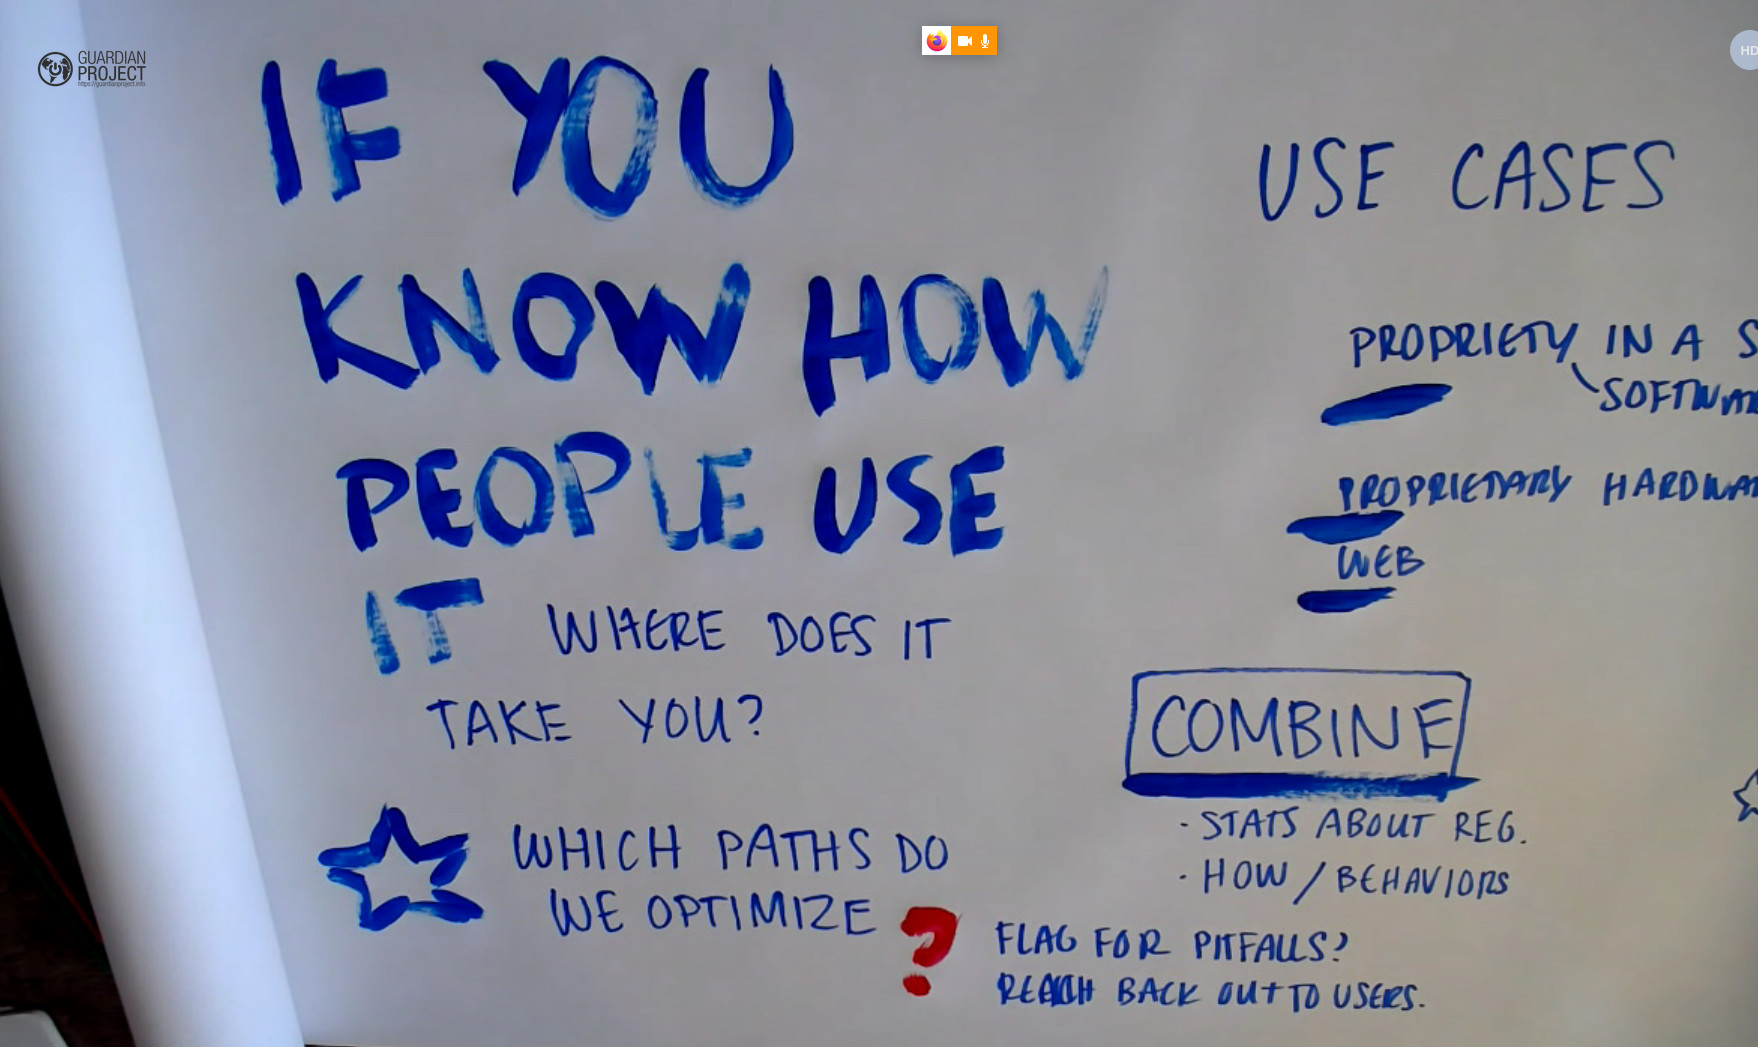 GUARDIAN
PROJECT
https://guardianproject.info
HD
IF YOU
KNOW HOW
PEOPLE USE
IT WHERE DOES IT
TAKE YOU?
WHICH PATHS DO
WE OPTIMIZE ?
FLAG FOR PITFALLS?
REACH BACK OUT TO USERS.
USE CASES
PROPRIETY IN A S
SOFTWAR
PROPRIETARY HARDWAR
WEB
COMBINE
· STATS ABOUT REG.
· HOW / BEHAVIORS